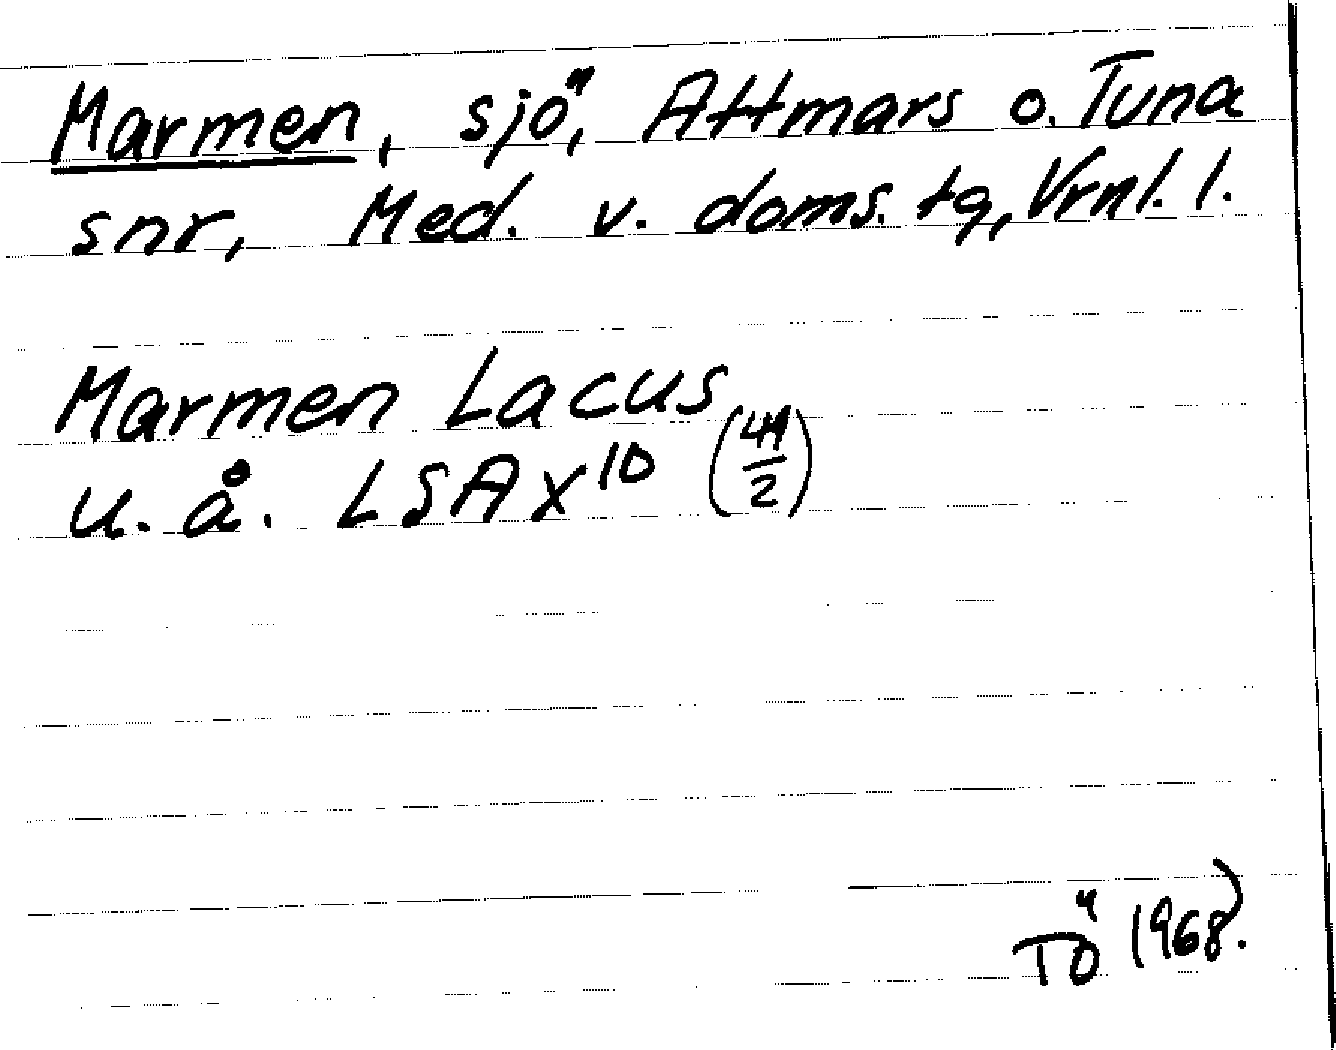 Marmen, sjö, Attmars o. Tuna
snr, Med. v. doms. tg, Vrnl. l.
Marmen Lacus
u. å. LSA X¹⁰ (44/2)
TÖ 1968.